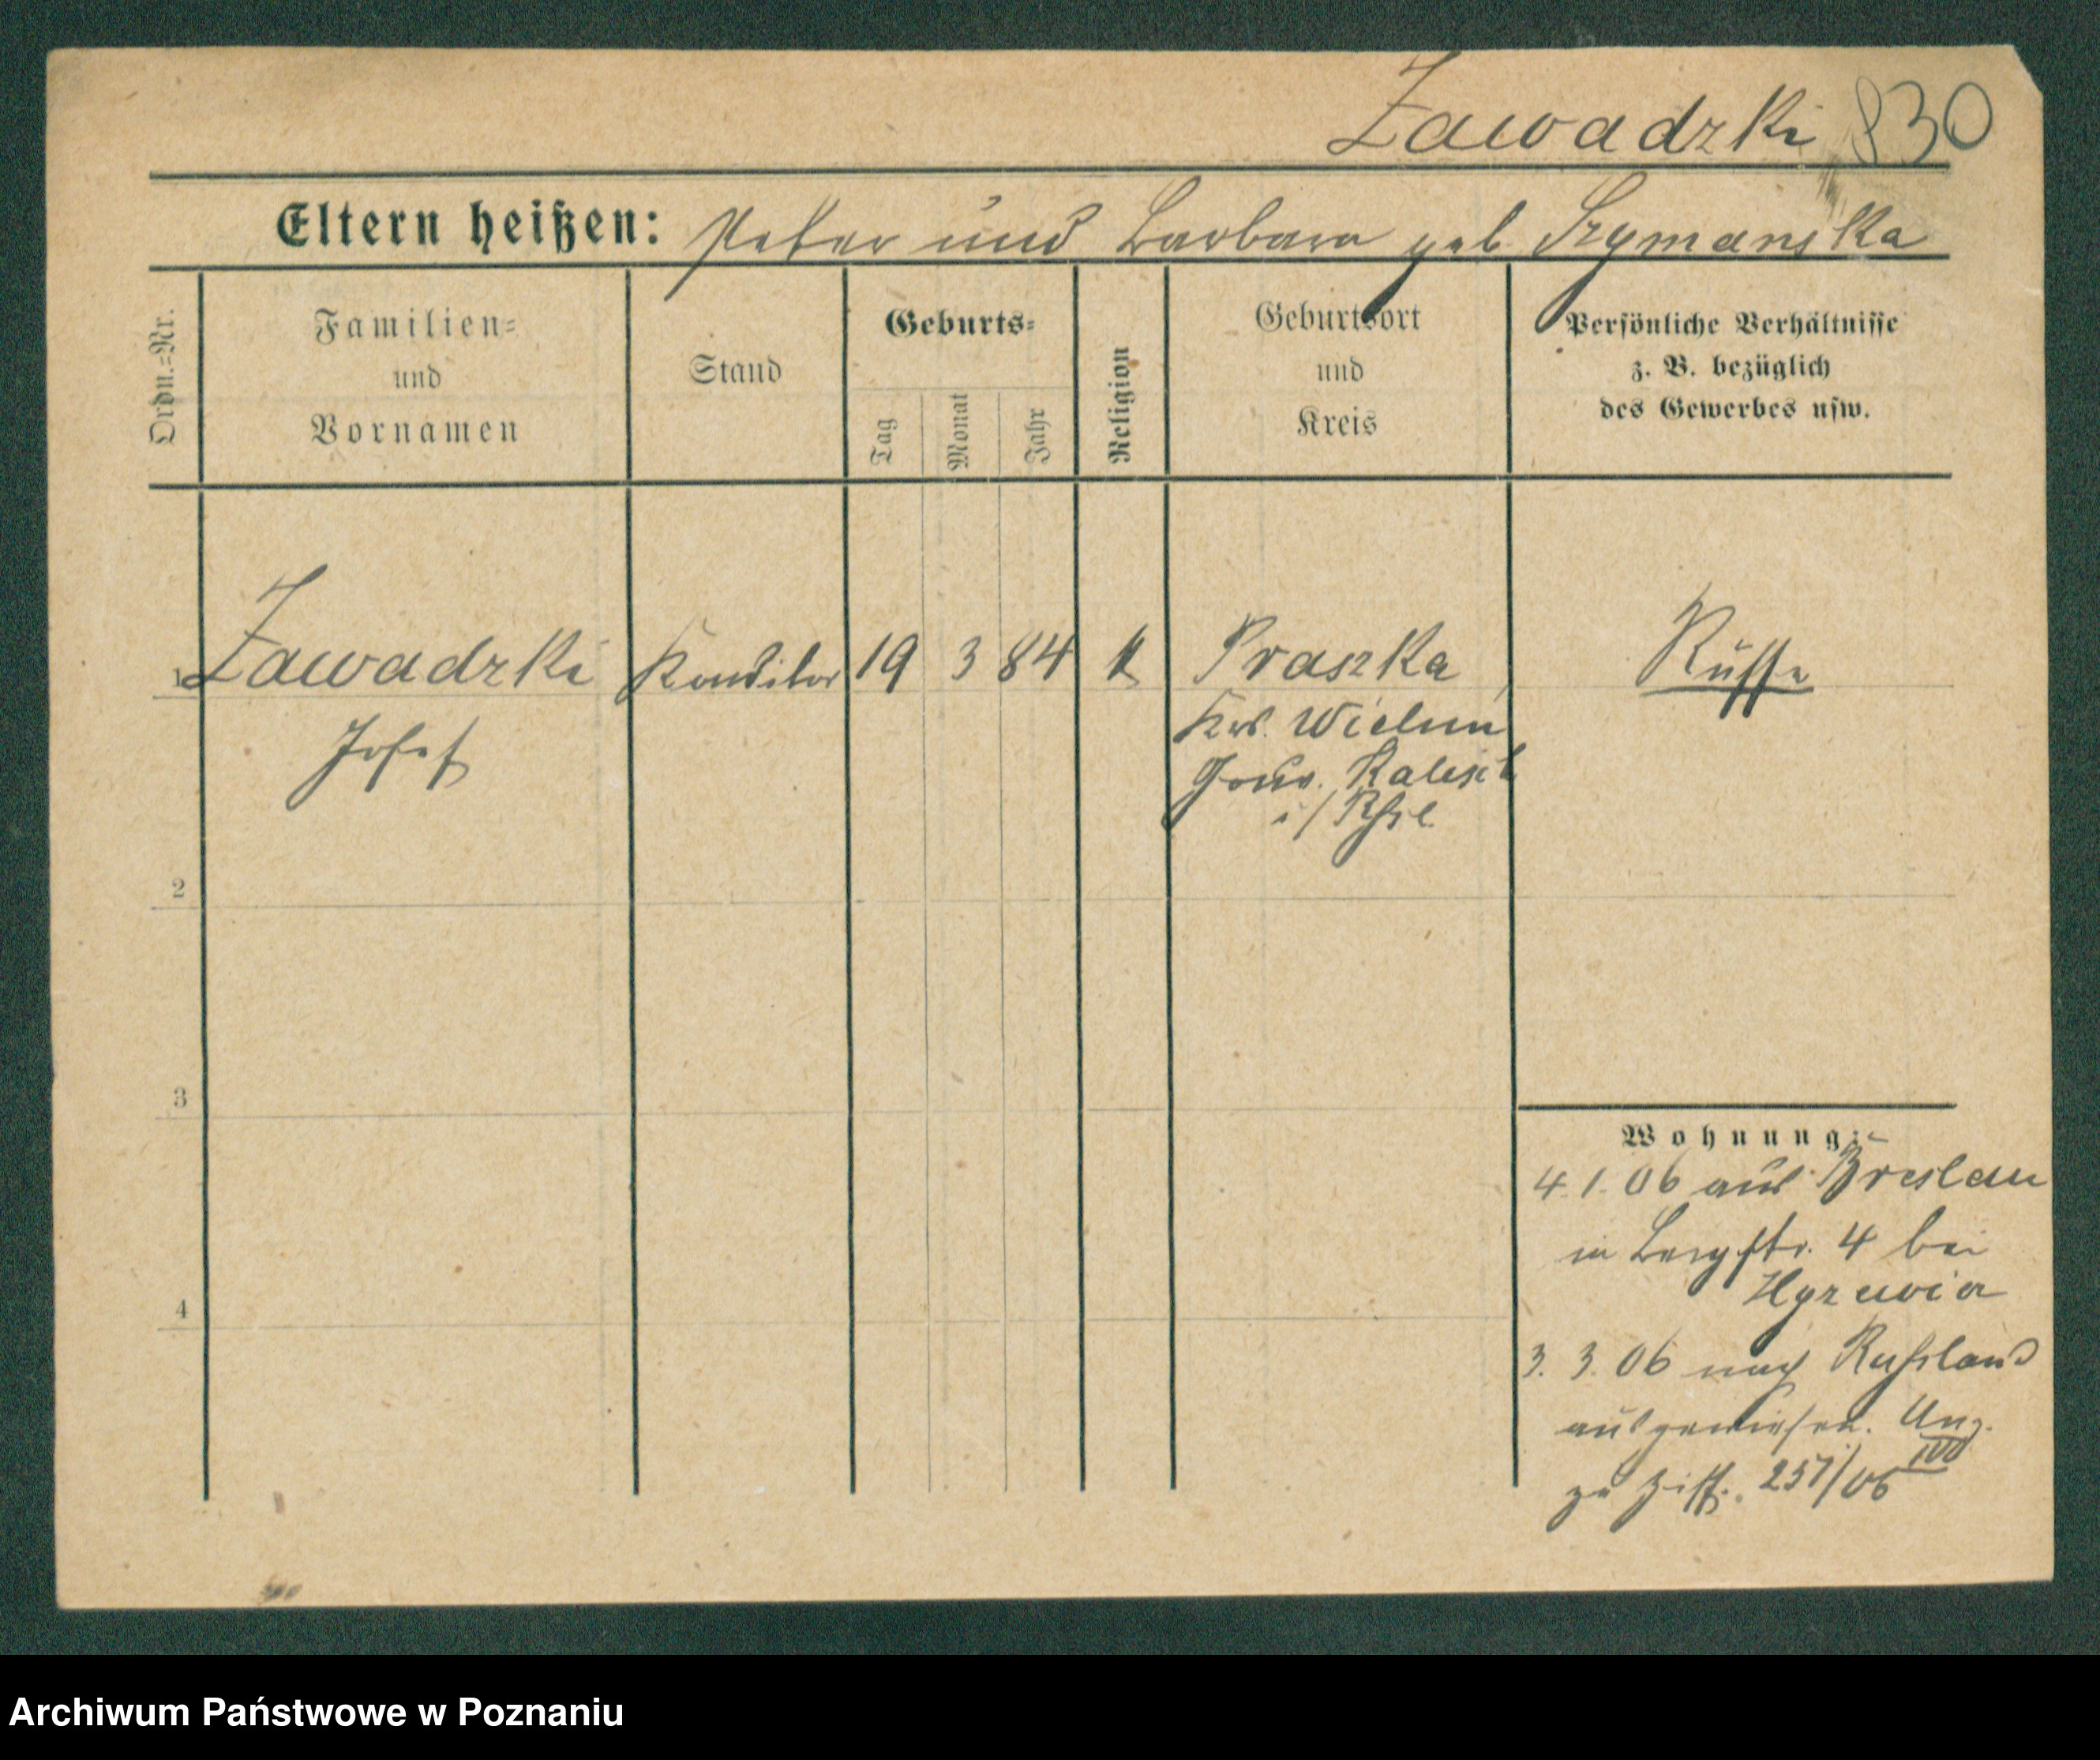 Zawadzki 830
Eltern heißen: Peter und Barbara geb Szymanska
Ordn.=Nr.
Familien=
und
Vornamen
Stand
Geburts=
Tag
Monat
Jahr
Religion
Geburtsort
und
Kreis
Persönliche Verhältnisse
z. B. bezüglich
des Gewerbes usw.
1 Zawadzki Konditor 19 3 84 k Praszka Russe
Josef
Krs. Wielun
Gouv. Kalisch
i/Rßl
2
3
4
Wohnung:
4.1.06 aus Breslau
in Bergstr. 4 bei
3. 3. 06 nach Rußland
ausgewiesen. Ang.
zu Ziff. 257/06
Archiwum Państwowe w Poznaniu